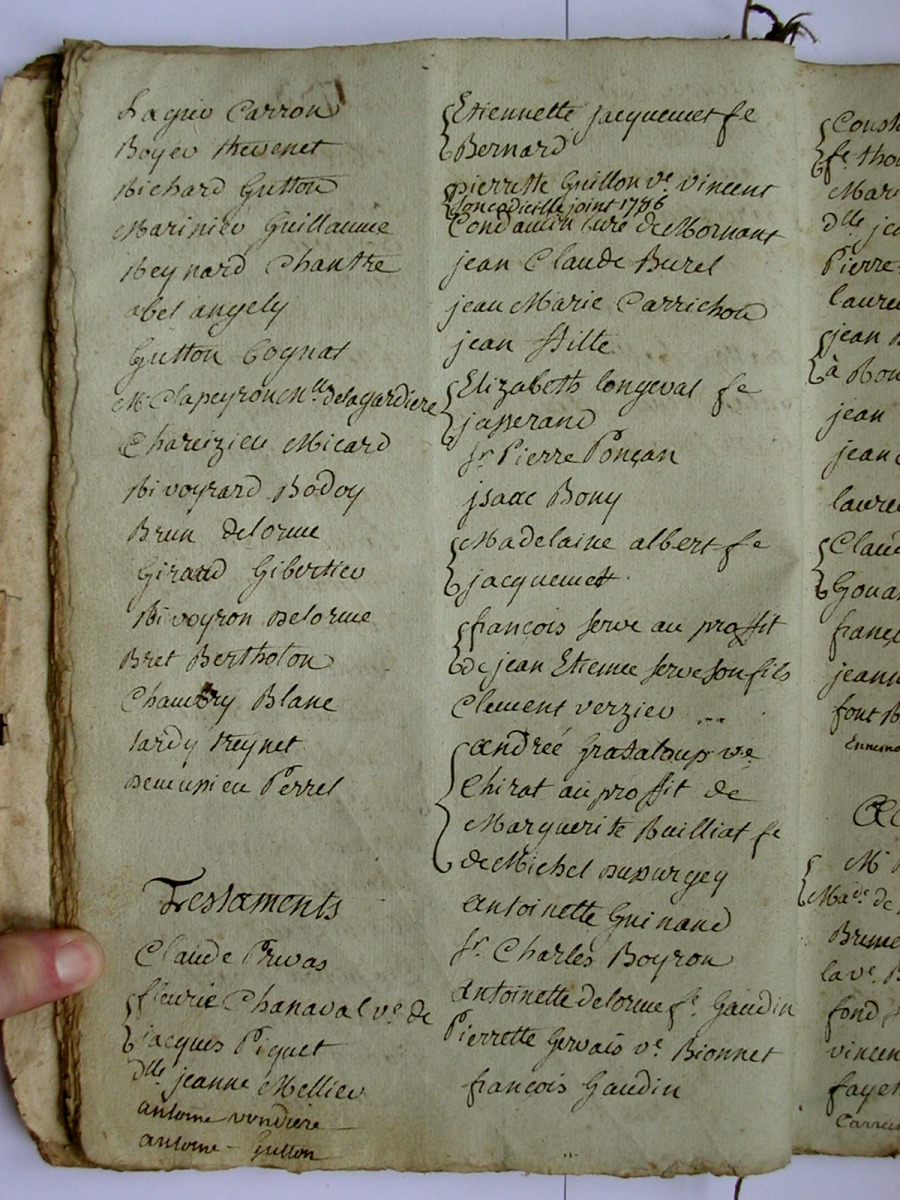 Fagnio Carron
Boyer thevenet
Richard Gutton
Marinier Guillaume
Reynard Chantre
abel angely
Gutton Cognat
Mr Clapeyron Mlle delagardiere
Chareizieu Micard
Rivoyrard Bodoy
Brun delorme
Giraud Gibertier
Rivoyron Delorme
Bret Bertholon
Chambry Blanc
tardy Reynet
Perret
Testaments
Claude Privas
fleurie Chanaval ve. de
jacques Piquet
Dlle jeanne Mellier
antoine vondiere
antoine Gutton
Etiennette jacquemet fe
Bernard
pierrette Guillon ve. vincent
joint 1786
Condamin Curé de Mornant
jean Claude Burel
jean Marie Carrichon
jean Stille
Elizabeth longeval fe
jasserand
Sr Pierre Ponçan
jsaac Bony
Madelaine albert fe
jacquemet
françois serve au proffit
de jean Etienne serve son fils
Clement verzieu
andreé Grataloup ve
Chirat au proffit de
Marguerite Builliat fe
de Michel Dupurgey
antoinette Guinand
Sr. Charles Boyron
antoinette delorme fe. Gaudin
Pierrette Gervais ve Bionnet
françois Gaudin
fe. tho
Mari
dlle je
Pierre
laure
jean
à Bon
jean
jean
laure
Claud
Goua
franç
jeann
font
Mr
de
la ve. B
fond
vincen
faye